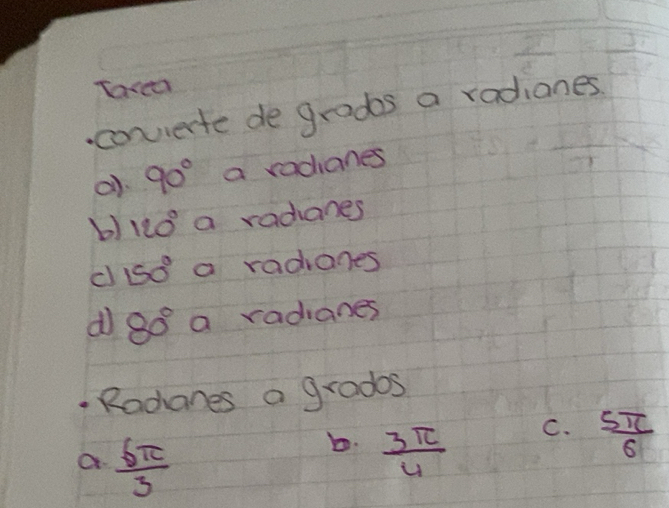 Tarea
·convierte de grados a radianes.
a). 90° a radianes
b) 120° a radianes
c) 150° a radianes
d) 80° a radianes
·Radianes a grados
a. 6π/3 b. 3π/4 c. 5π/6